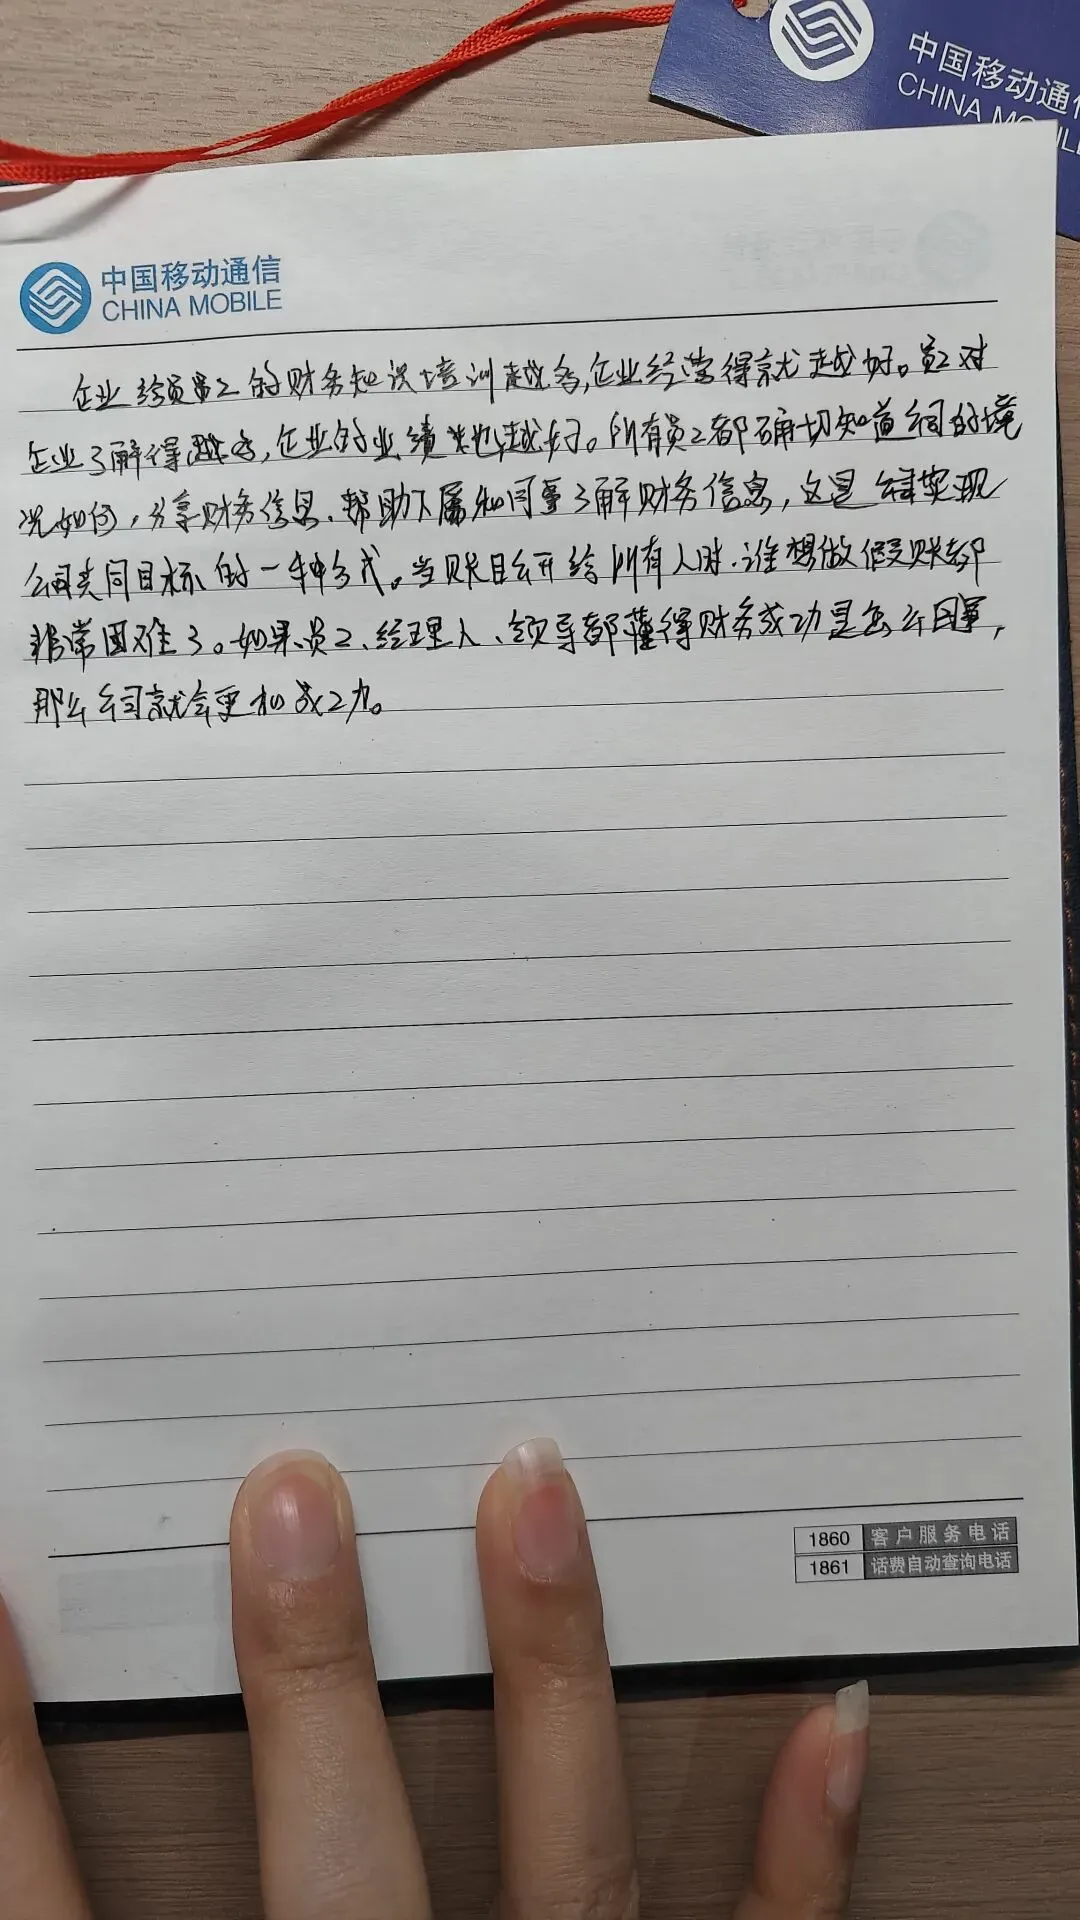 中国移动通信
CHINA MOBILE
中国移动通信
CHINA MOBILE
企业给员工的财务知识培训越多,企业经营得就越好。员工对
企业了解得越多,企业的业绩也越好。所有员工都确切知道公司的境
况如何,分享财务信息、帮助下属和同事了解财务信息,这是 实现
公司共同目标的一种方式。当账目公开给所有人时,谁想做假账都
非常困难了。如果员工、经理人、领导都懂得财务成功是怎么回事,
那么公司就会更加成功。
1860 客户服务电话
1861 话费自动查询电话